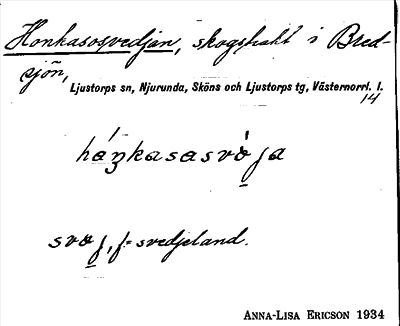 Honkasosvedjan, skogstrakt i Bred-
sjön, Ljustorps sn, Njurunda, Sköns och Ljustorps tg, Västernorrl. l.
14
svedjeland.
ANNA-LISA ERICSON 1934